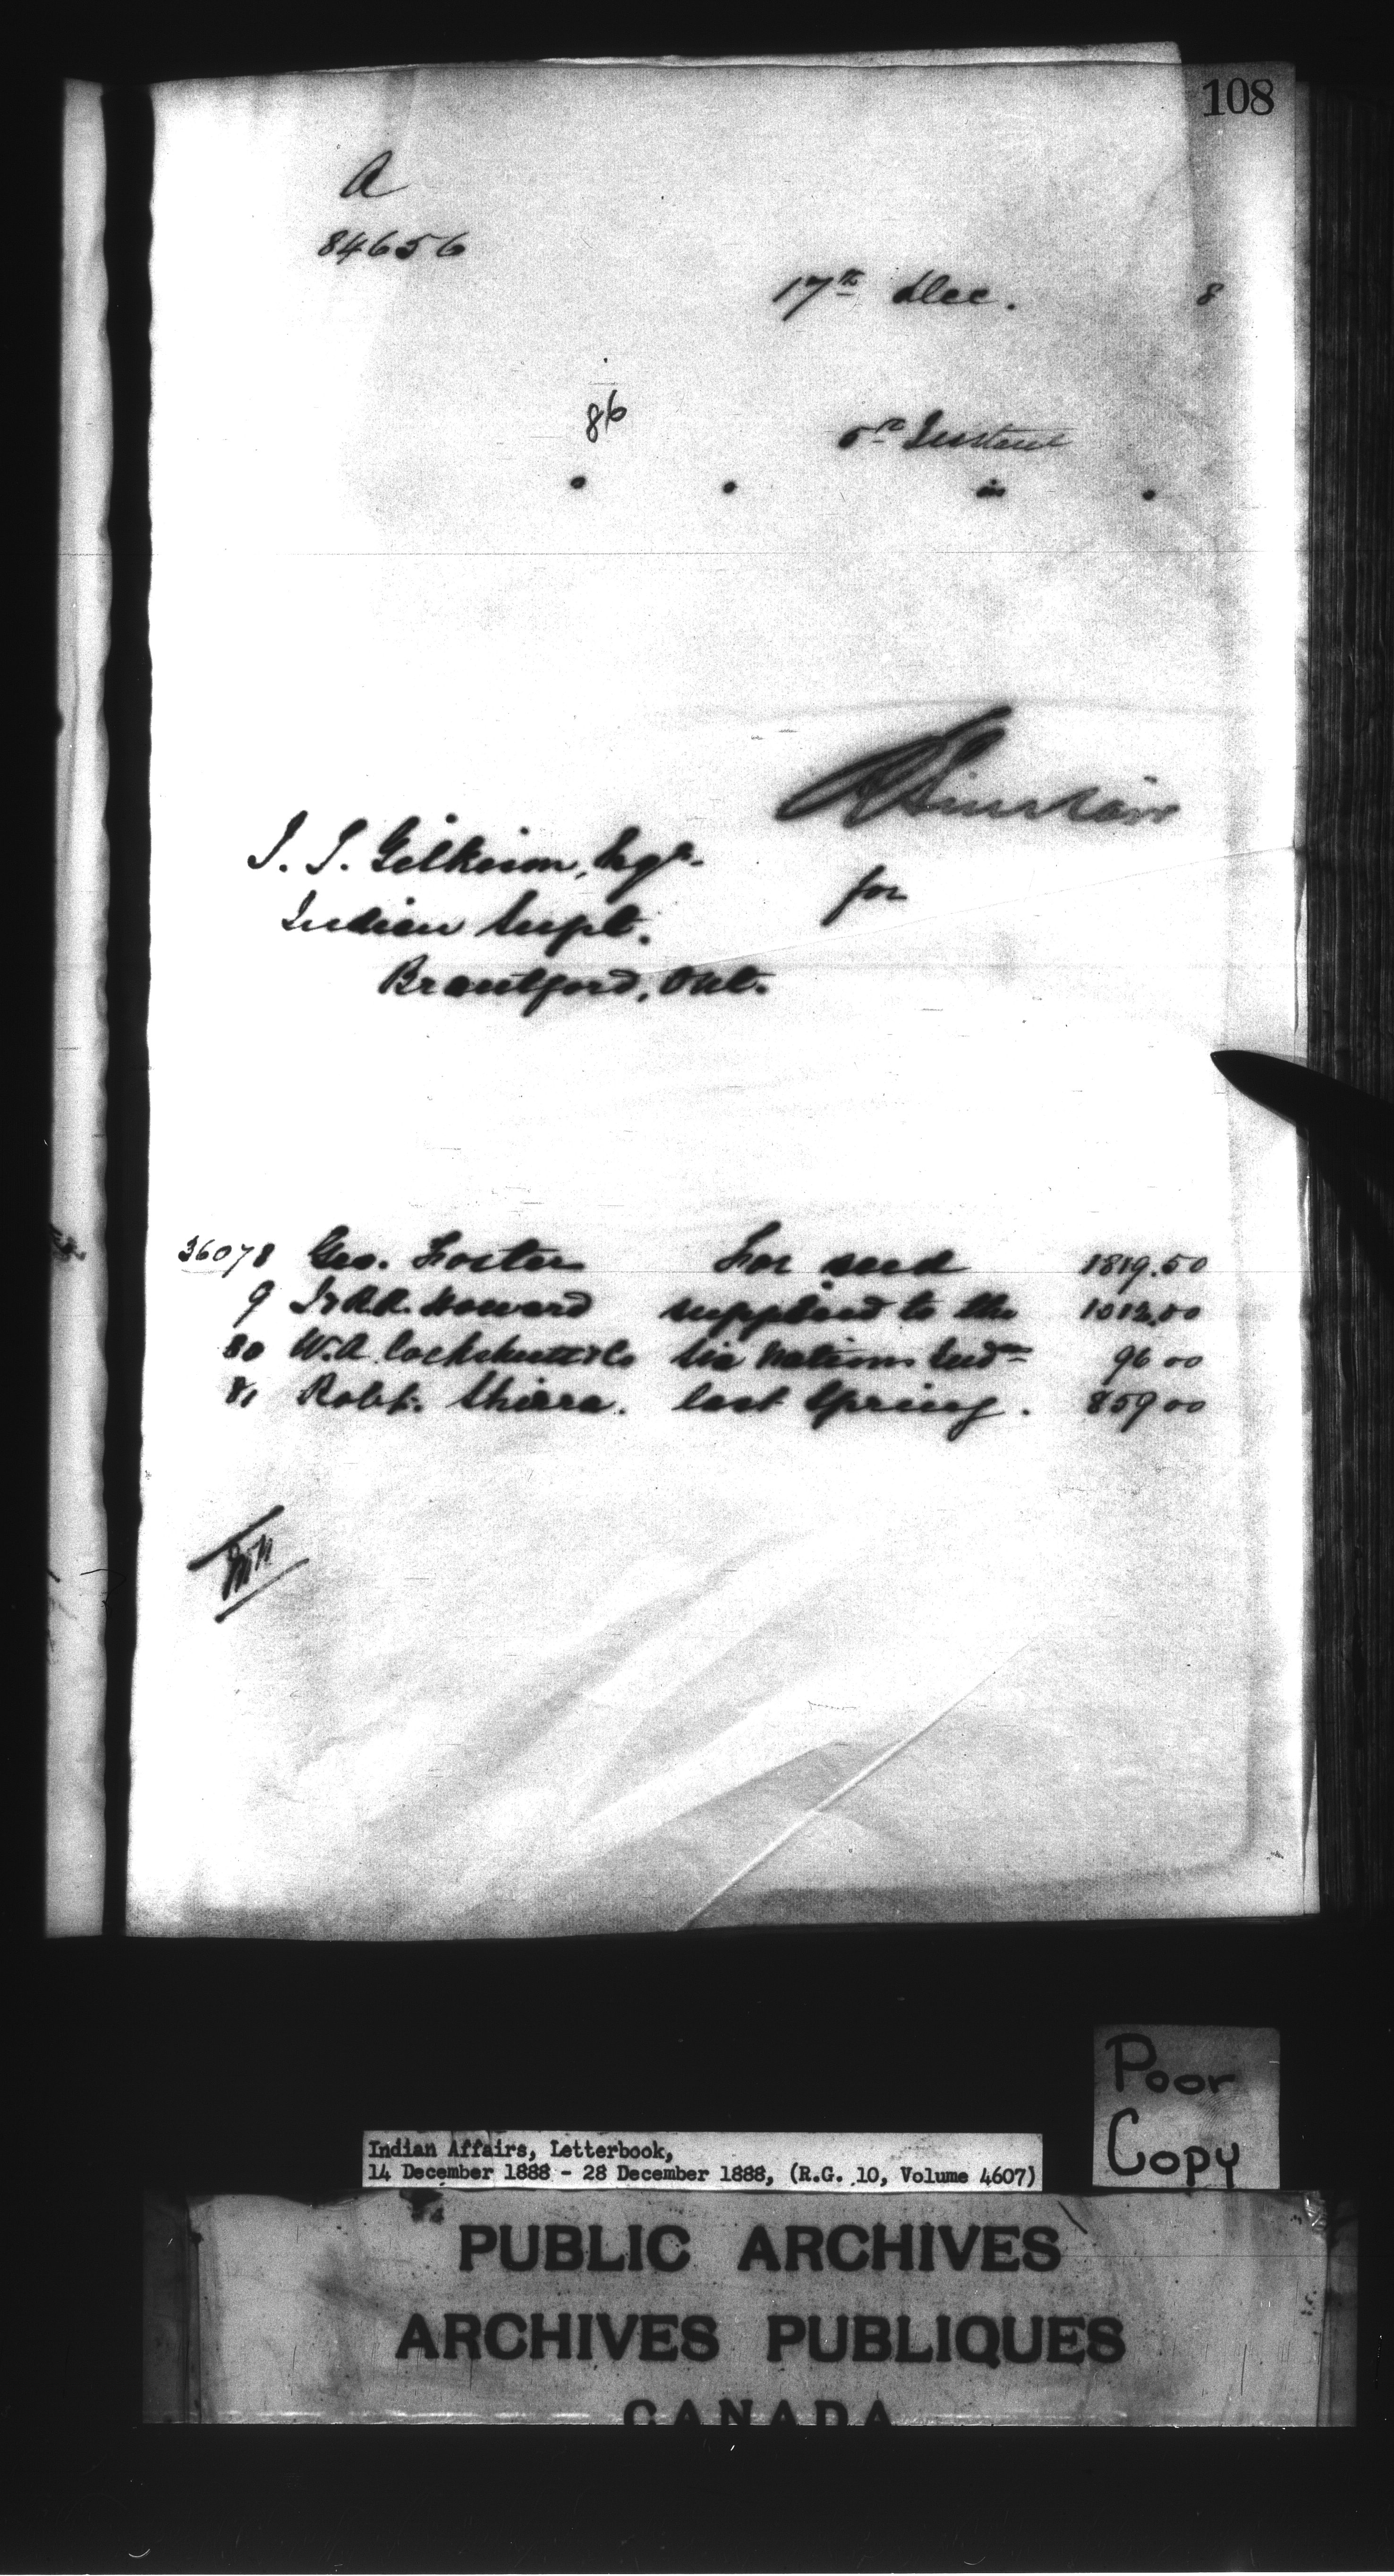 108
A
84656
17th Dec. 8
86
5th Instant
R Sinclair
J. T. Gilkison, Esqr.
for
Indian Supt.
Brantford, Ont.
36078 Geo. Foster For seed 1819.50
9 Howard supplied to the 1012.00
80 W.A. Cockshutt & Co Six Nations Indns 96 00
81 Robt. last Spring. 859 00
Poor
Copy
Indian Affairs, Letterbook,
14 December 1888 - 28 December 1888, (R.G. 10, Volume 4607)
PUBLIC ARCHIVES
ARCHIVES PUBLIQUES
CANADA